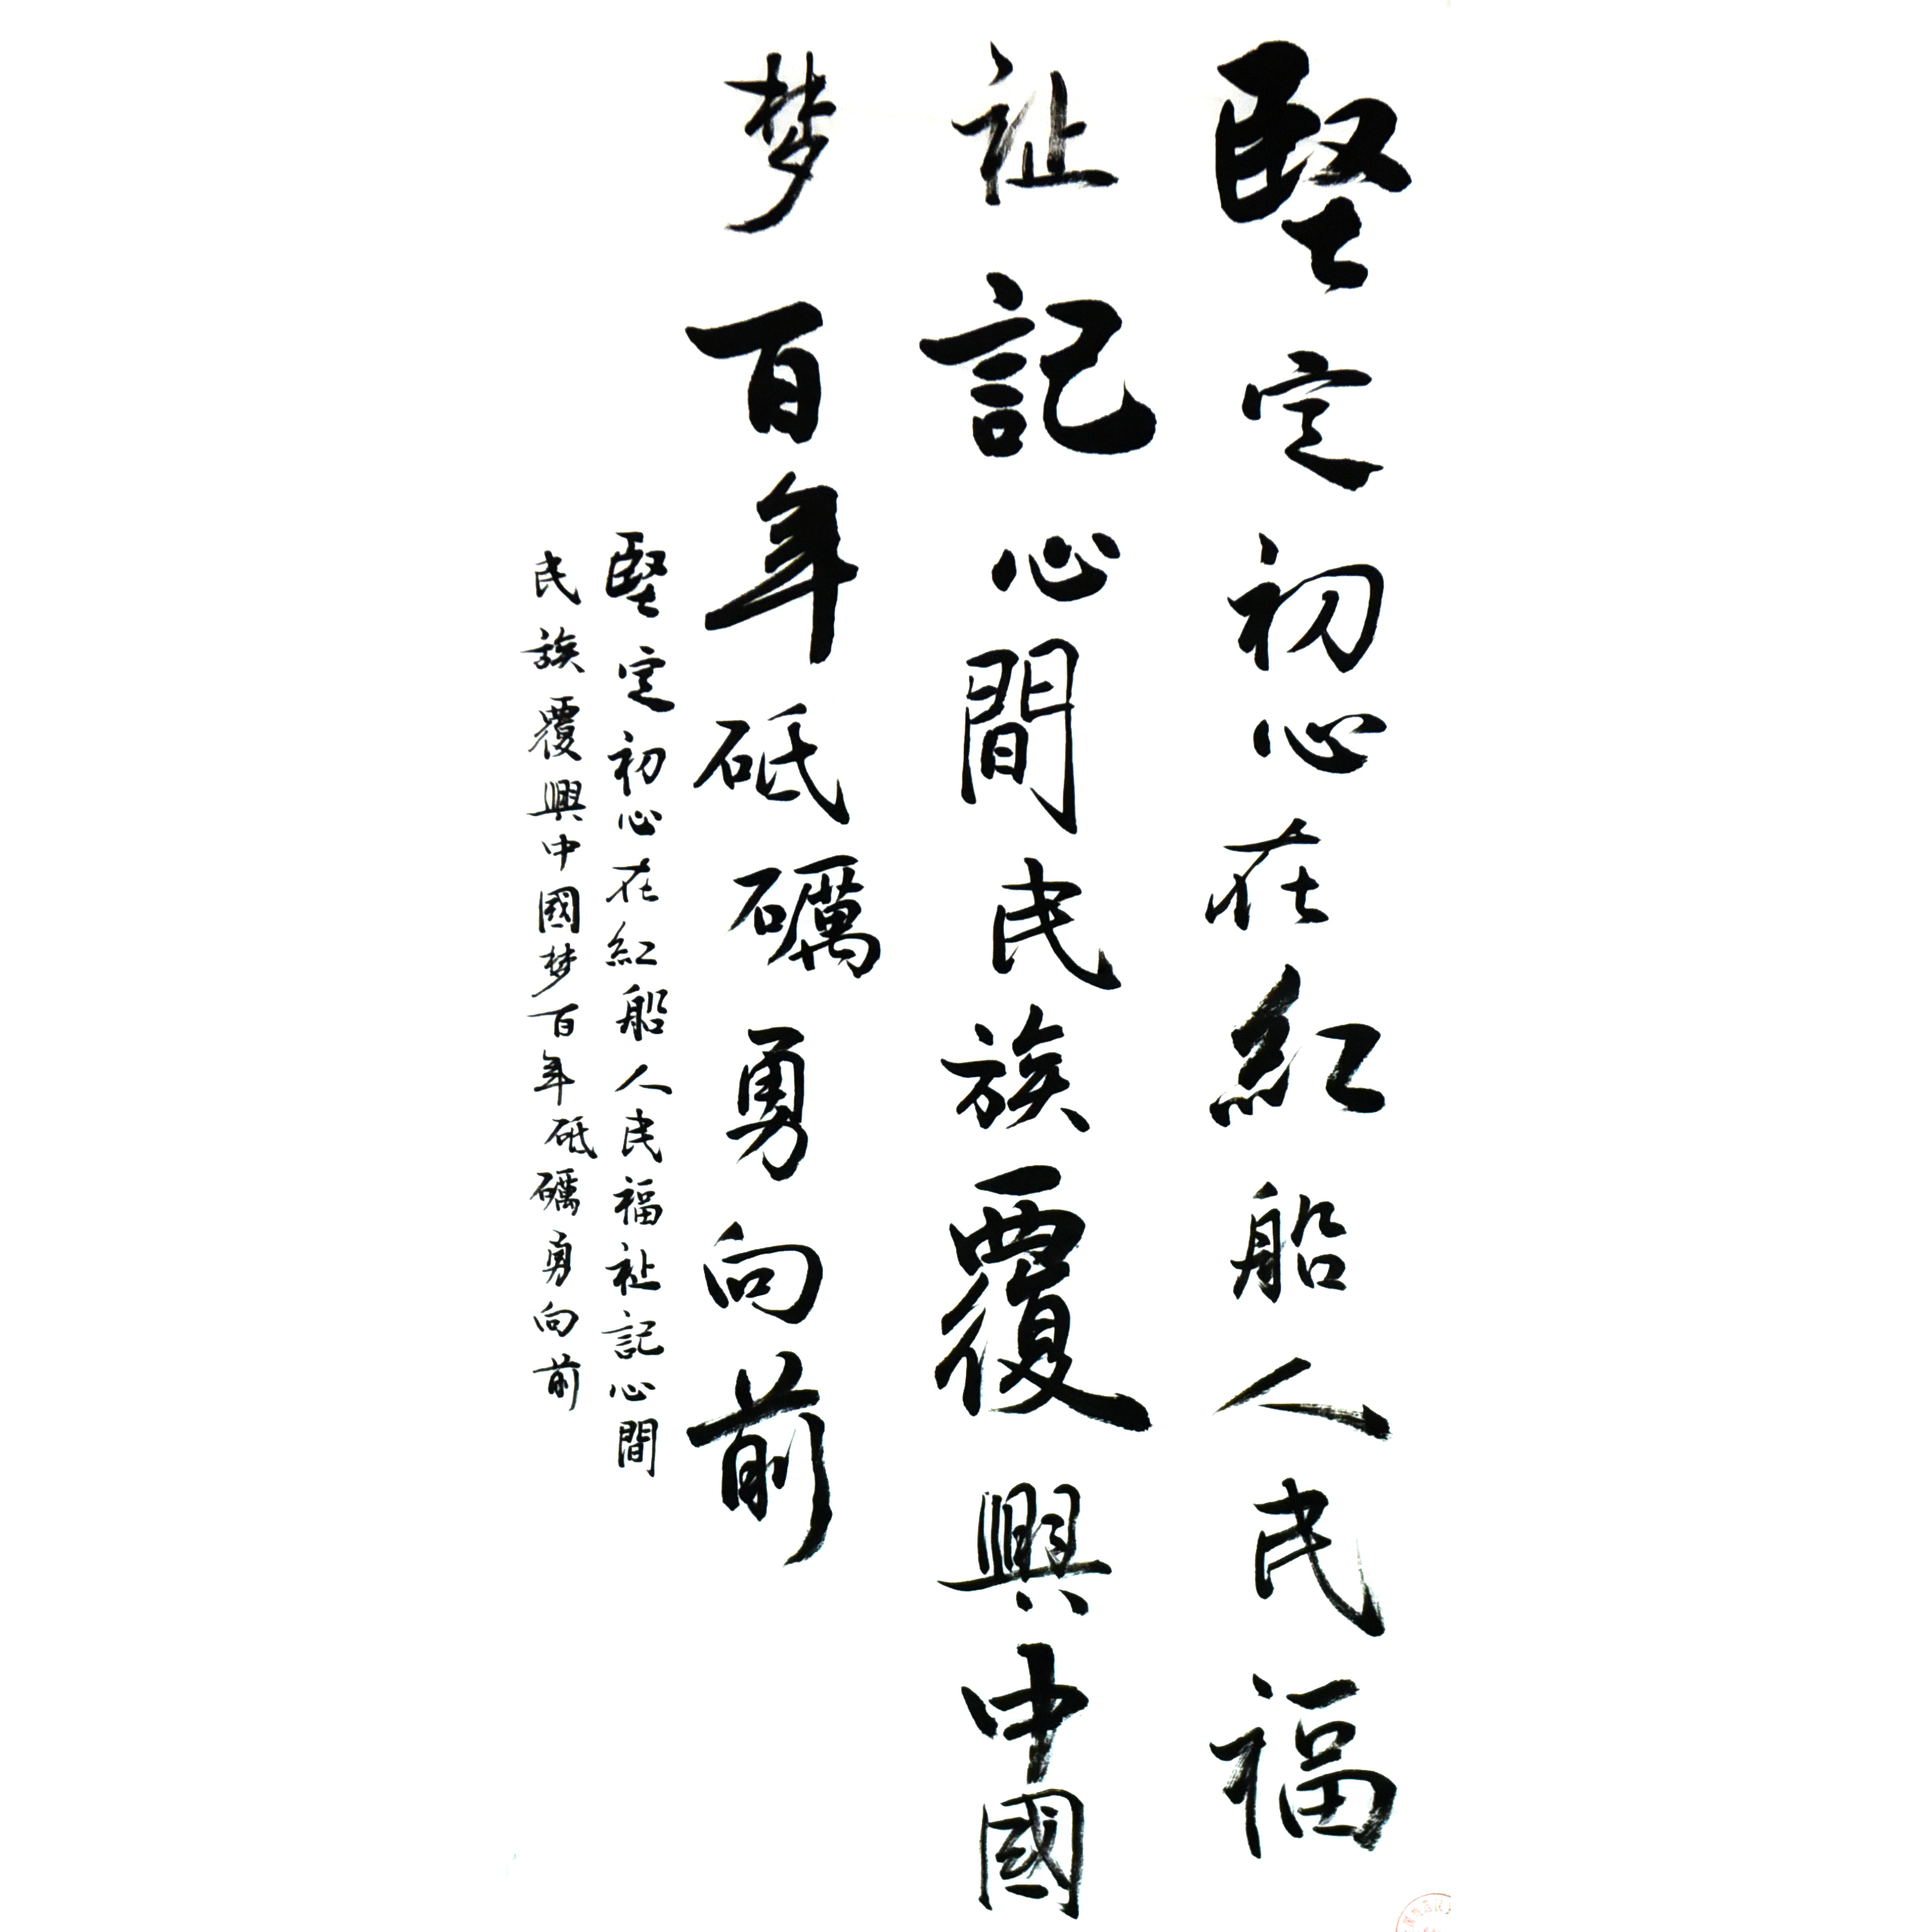 堅定初心在紅船人民福
祉記心間民族覆興中國
梦百年砥礪勇向前
堅定初心在紅船人民福祉記心間
民族覆興中國梦百年砥礪勇向前